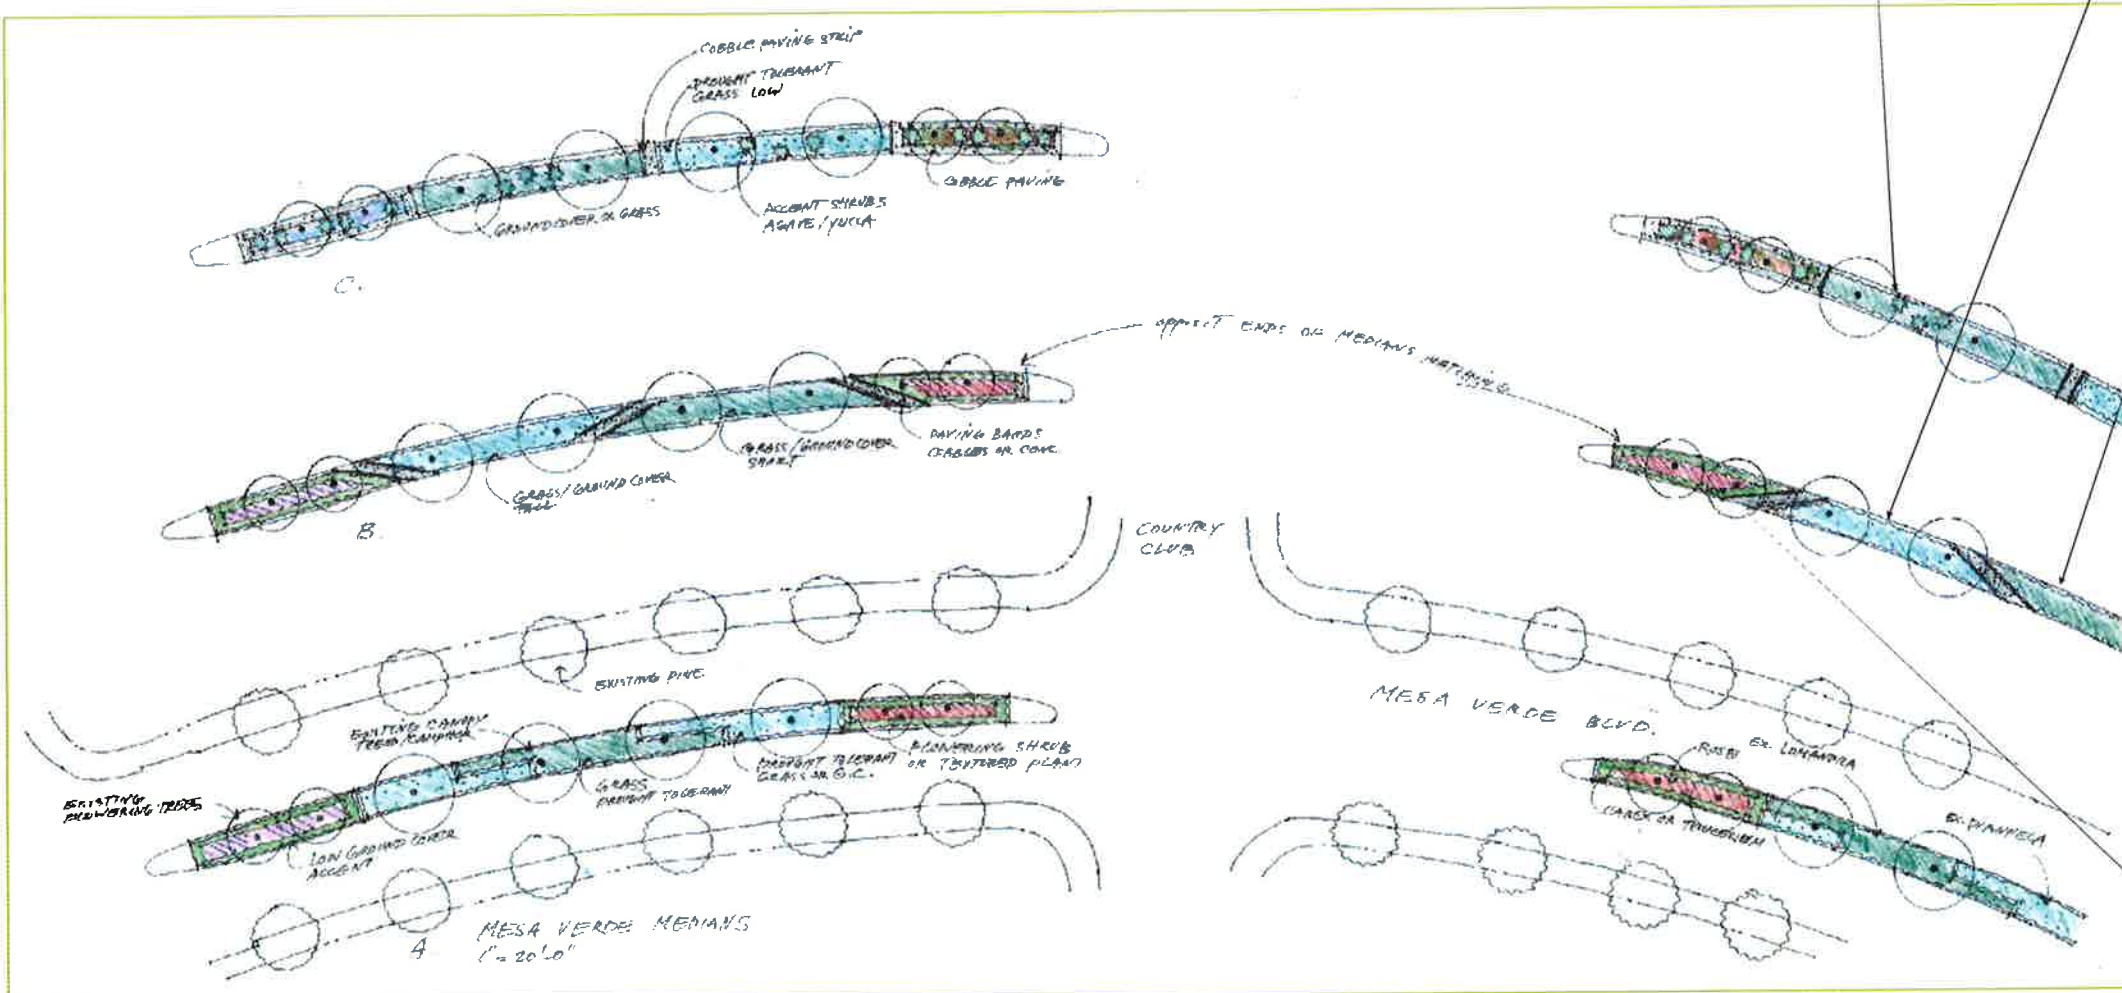 COBBLE PAVING STRIP
DROUGHT TOLERANT
GRASS LOW
COBBLE PAVING
ACCENT SHRUBS
AGAVE/YUCCA
GROUNDCOVER OR GRASS
C.
OPPOSIT ENDS OF MEDIANS MATCHING
PAVING BANDS
COBBLES OR CONC.
GRASS/GROUNDCOVER
SHORT
GRASS/GROUND COVER
TALL
B.
COUNTRY
CLUB
EXISTING PINE
MESA VERDE BLVD.
EXISTING CANOPY
TREES/CAMPHOR
FLOWERING SHRUB
OR TEXTURED PLANT
DROUGHT TOLERANT
GRASS OR G.C.
GRASS
DROUGHT TOLERANT
EXISTING
FLOWERING TREES
LOW GROUND COVER
ACCENT
ROSES
EX. LOMANDRA
EX. DIANNELA
CAREX OR
A
MESA VERDE MEDIANS
1"=20'-0"